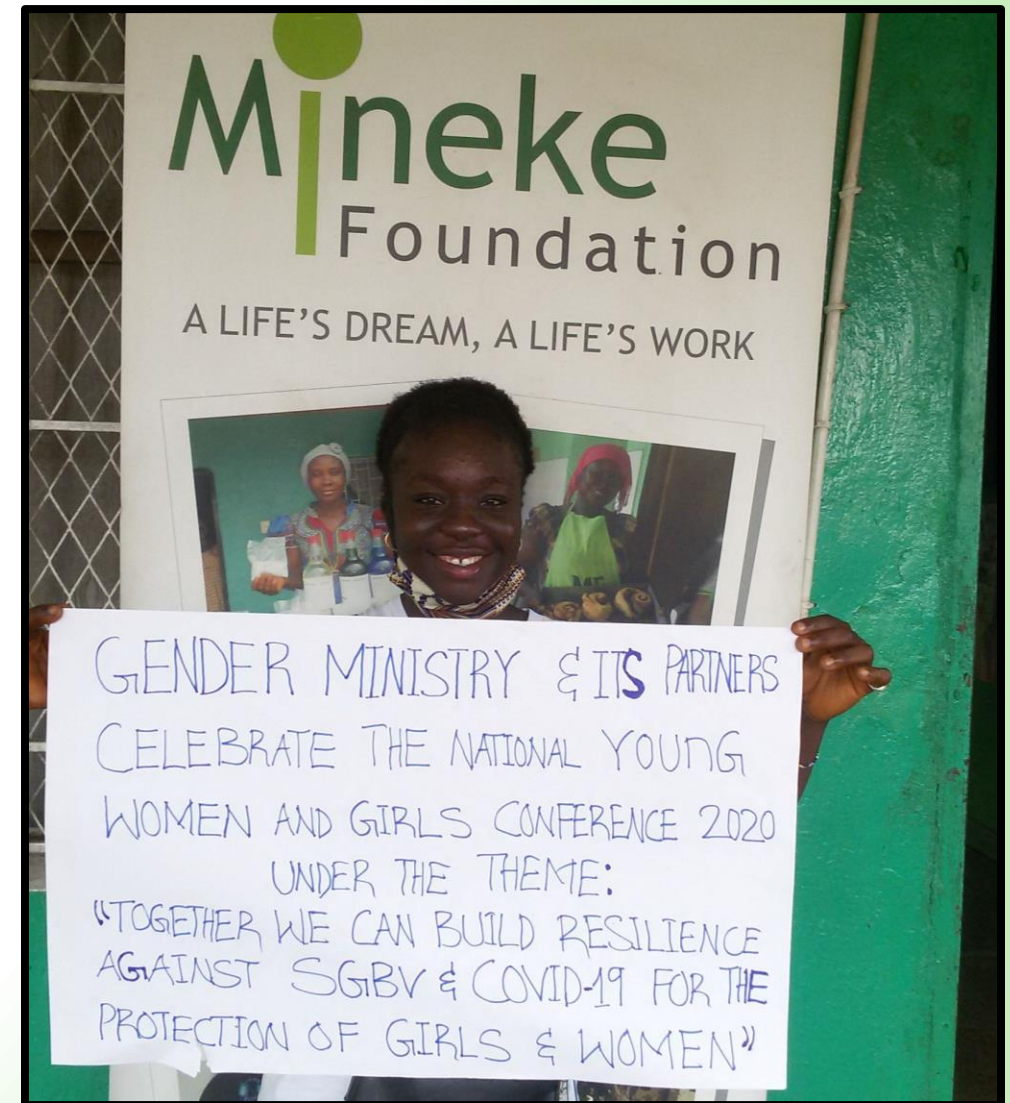 Mineke
Foundation
A LIFE'S DREAM, A LIFE'S WORK
GENDER MINISTRY & ITS PARTNERS
CELEBRATE THE NATIONAL YOUNG
WOMEN AND GIRLS CONFERENCE 2020
UNDER THE THEME:
"TOGETHER WE CAN BUILD RESILIENCE
AGAINST SGBV & COVID-19 FOR THE
PROTECTION OF GIRLS & WOMEN"